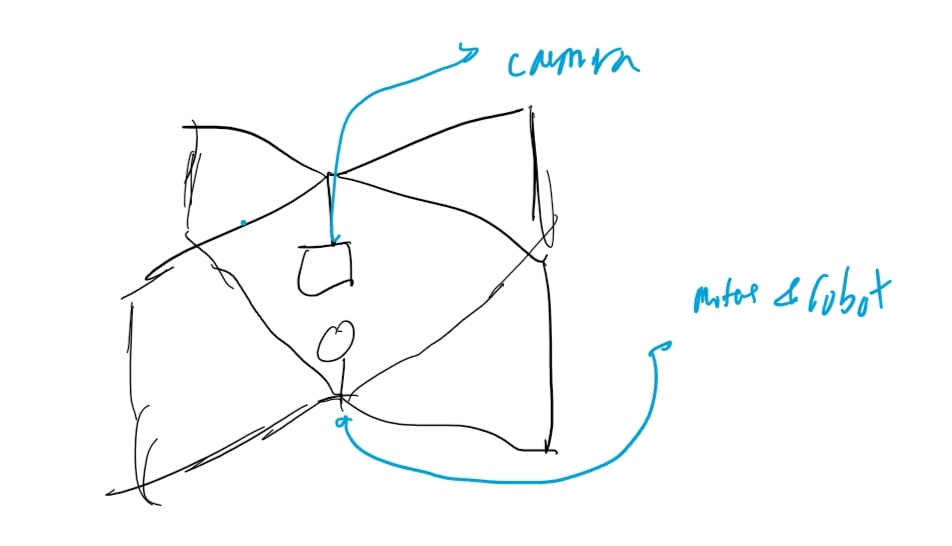 camera
motor & robot